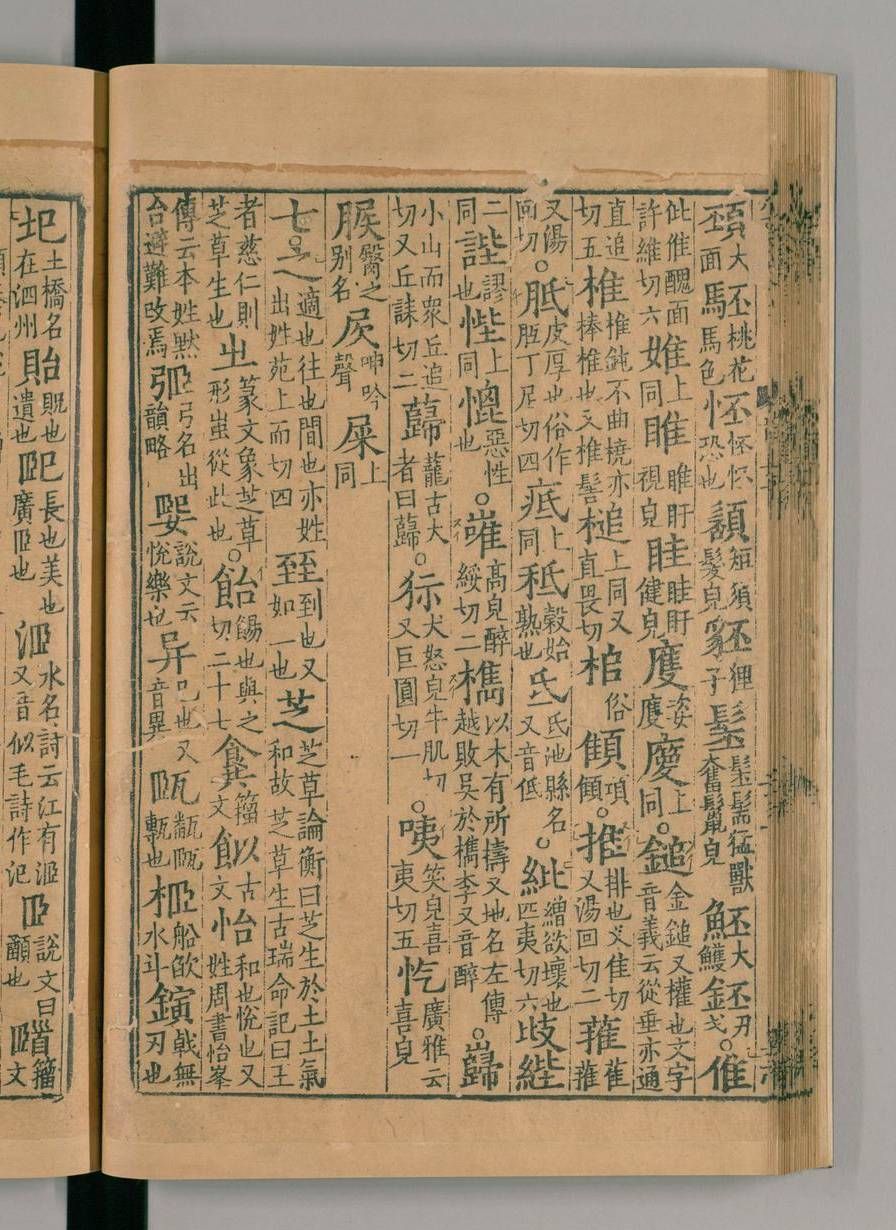 大面 駓 桃花馬色 怌 怌怌恐也 短須髮皃 豾 狸子 髬 髬髵猛獸奮鬣皃 魾 大鱯 鉟 刃戈 ○ 倠
此倠醜面許維切六 婎 上同 睢 睢盱視皃 眭 眭盱健皃 姿 上同 ○ 鎚 金鎚又權也文字音義云從垂亦通
直追切五 椎 椎鈍不曲橈亦棒椎也又椎髻 槌 上同又直畏切 桘 俗 顀 項顀 ○ 推 排也又隹切又湯回切二 蓷 萑蓷
又湯回切 ○ 胝 皮厚也俗作胵丁尼切四 疷 上同 秪 穀始熟也 氐 氐池縣名又音低 ○ 紕 繒欲壞也匹夷切六
二同 謬也 悂 上同 惡性也 ○ 嶉 高皃醉綏切二 檇 以木有所擣又地名左傳越敗吳於檇李又音醉 ○ 巋
小山而衆丘追切又丘誄切二 蘬 蘢古大者曰蘬 ○ 狋 犬怒皃牛肌切又巨圓切一 ○ 咦 笑皃喜夷切五 忔 廣雅云喜皃
臀之别名 呻吟聲 屎 上同
七之 適也往也間也亦姓出姓苑上而切四 臸 到也又如一也 芝 芝草論衡曰芝生於土土氣和故芝草生古瑞命記曰王
者慈仁則芝草生也 㞢 篆文象芝草形蚩從此也 ○ 飴 餳也與之切二十七 籀文 古文 怡 和也悅也又姓周書怡峯
傳云本姓默台避難改焉 弬 弓名出韻略 說文云悅樂也 异 已也又音異 瓵 瓿瓵甎也 船戽水斗 戟無刃也
圯 土橋名在泗州 貽 貺也遺也 長也美也 廣也 洍 水名詩云江有洍又音似毛詩作汜 說文曰顄也 籀文